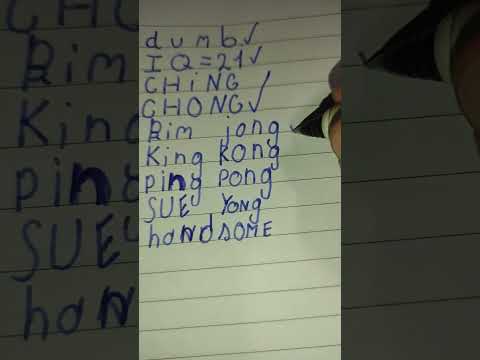 dumb✓
IQ=21✓
CHiNG
CHONG✓
Rim jong ✓
King KONg
PiNg PONg
SUE YoNg
haNdSOME